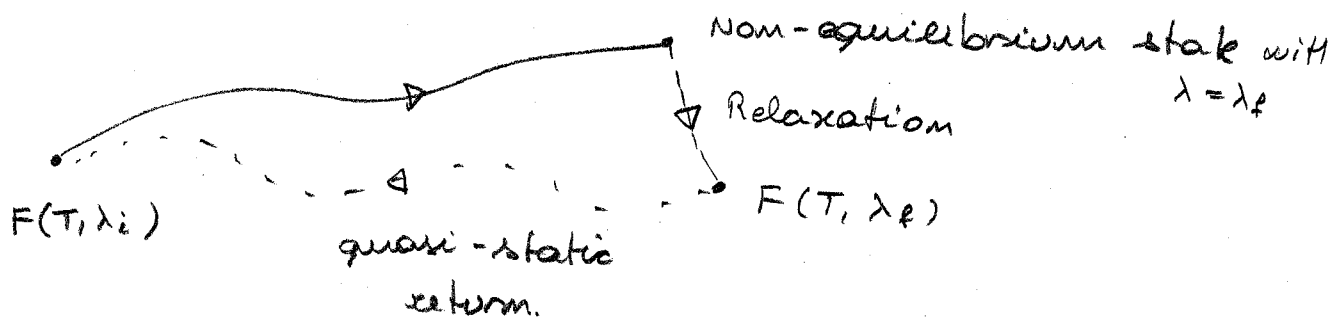 Non-equilibrium state with
λ = λf
Relaxation
F(T, λi)
F(T, λf)
quasi-static
return.